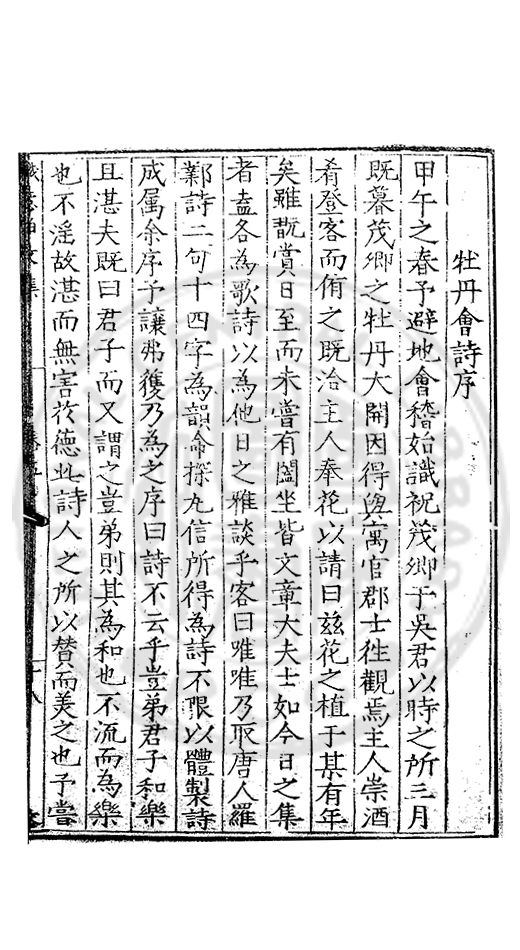 牡丹會詩序
甲午之春予避地會稽始識祝茂卿于吳君以時之所三月
既暮茂卿之牡丹大開因得與寓官郡士徃觀焉主人崇酒
肴登客而侑之既洽主人奉花以請曰兹花之植于某有年
矣雖翫賞日至而未嘗有闔坐皆文章大夫士如今日之集
者盍各為歌詩以為他日之雅談乎客曰唯唯乃取唐人羅
鄴詩二句十四字為韻命探丸信所得為詩不限以體製詩
成属余序予讓弗獲乃為之序曰詩不云乎豈弟君子和樂
且湛夫既曰君子而又謂之豈弟則其為和也不流而為樂
也不淫故湛而無害於德此詩人之所以賛而美之也予嘗